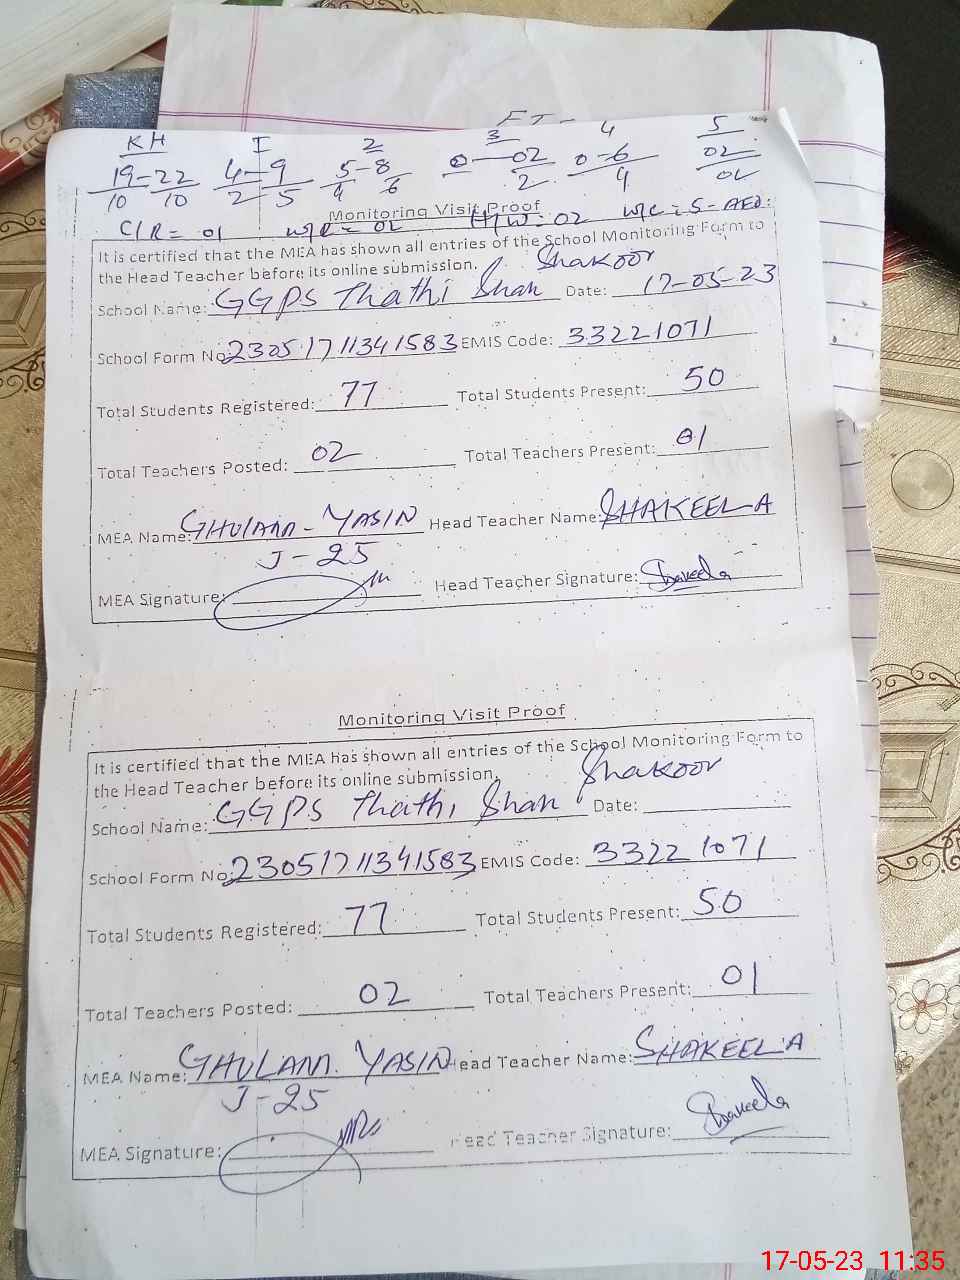 KH I 2 3 4 5
19-22 4-9 5-8 0-02 0-6 02
10 10 2 5 4 6 2 4 02
Monitoring Visit Proof
C/R = 01 W/R = 02 H/W = 02 W/C = 5-
It is certified that the MEA has shown all entries of the School Monitoring Form to
the Head Teacher before its online submission. Shakoor
School Name: GGPS Thathi Shah Date: 17-05-23
School Form No: 230517 11341583 EMIS Code: 33221071
Total Students Registered: 77 Total Students Present: 50
Total Teachers Posted: 02 Total Teachers Present: 01
MEA Name: GHULAM-YASIN Head Teacher Name: SHAKEELA
J-25
MEA Signature: Head Teacher Signature: Shakeela
Monitoring Visit Proof
It is certified that the MEA has shown all entries of the School Monitoring Form to
the Head Teacher before its online submission. Shakoor
School Name: GGPS Thathi Shah Date:
School Form No: 23051711341583 EMIS Code: 33221071
Total Students Registered: 77 Total Students Present: 50
Total Teachers Posted: 02 Total Teachers Present: 01
MEA Name: GHULAM. YASIN Head Teacher Name: SHAKEELA
J-25
MEA Signature: Head Teacher Signature: Shakeela
17-05-23 11:35